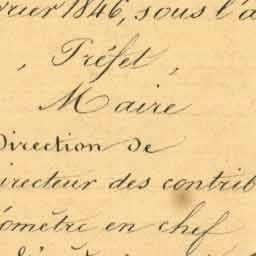 vrier 1846, sous l'a
, Préfet ,
Maire
Direction de
irecteur des contrib
éomètre en chef